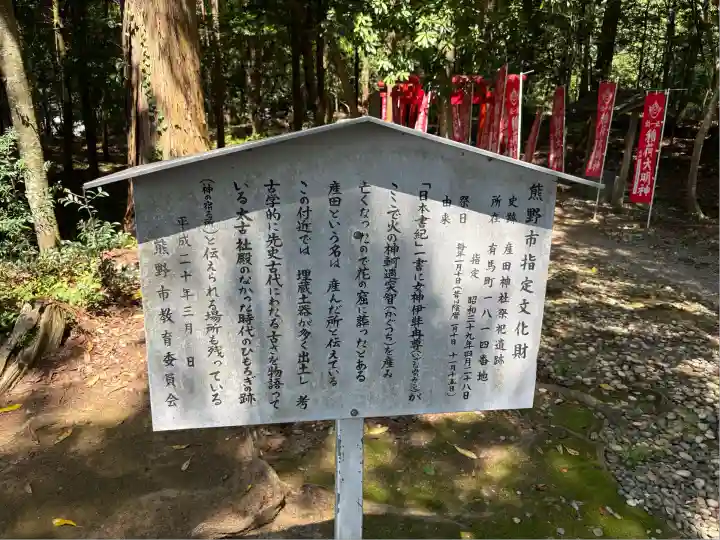 熊野市指定文化財
史跡 産田神社祭祀遺跡
所在 有馬町一八一四番地
指定 昭和三十九年四月二十八日
祭日 毎年一月十日(昔は陰暦一月十日 十一月十五日)
由来
「日本書紀」一書に女神伊弉冉尊(いざなみのみこと)が
ここで火の神軻遇突智(かぐつち)を産み
亡くなったので花の窟に葬ったとある
産田という名は 産んだ所と伝えている
この付近では 埋蔵土器が多く出土し 考
古学的に先史古代にわたる古さを物語って
いる 太古 社殿のなかった時代のひもろぎの跡
(神の宿る所)と伝えられる場所も残っている
平成二十年三月 日
熊野市教育委員会
稲荷大明神